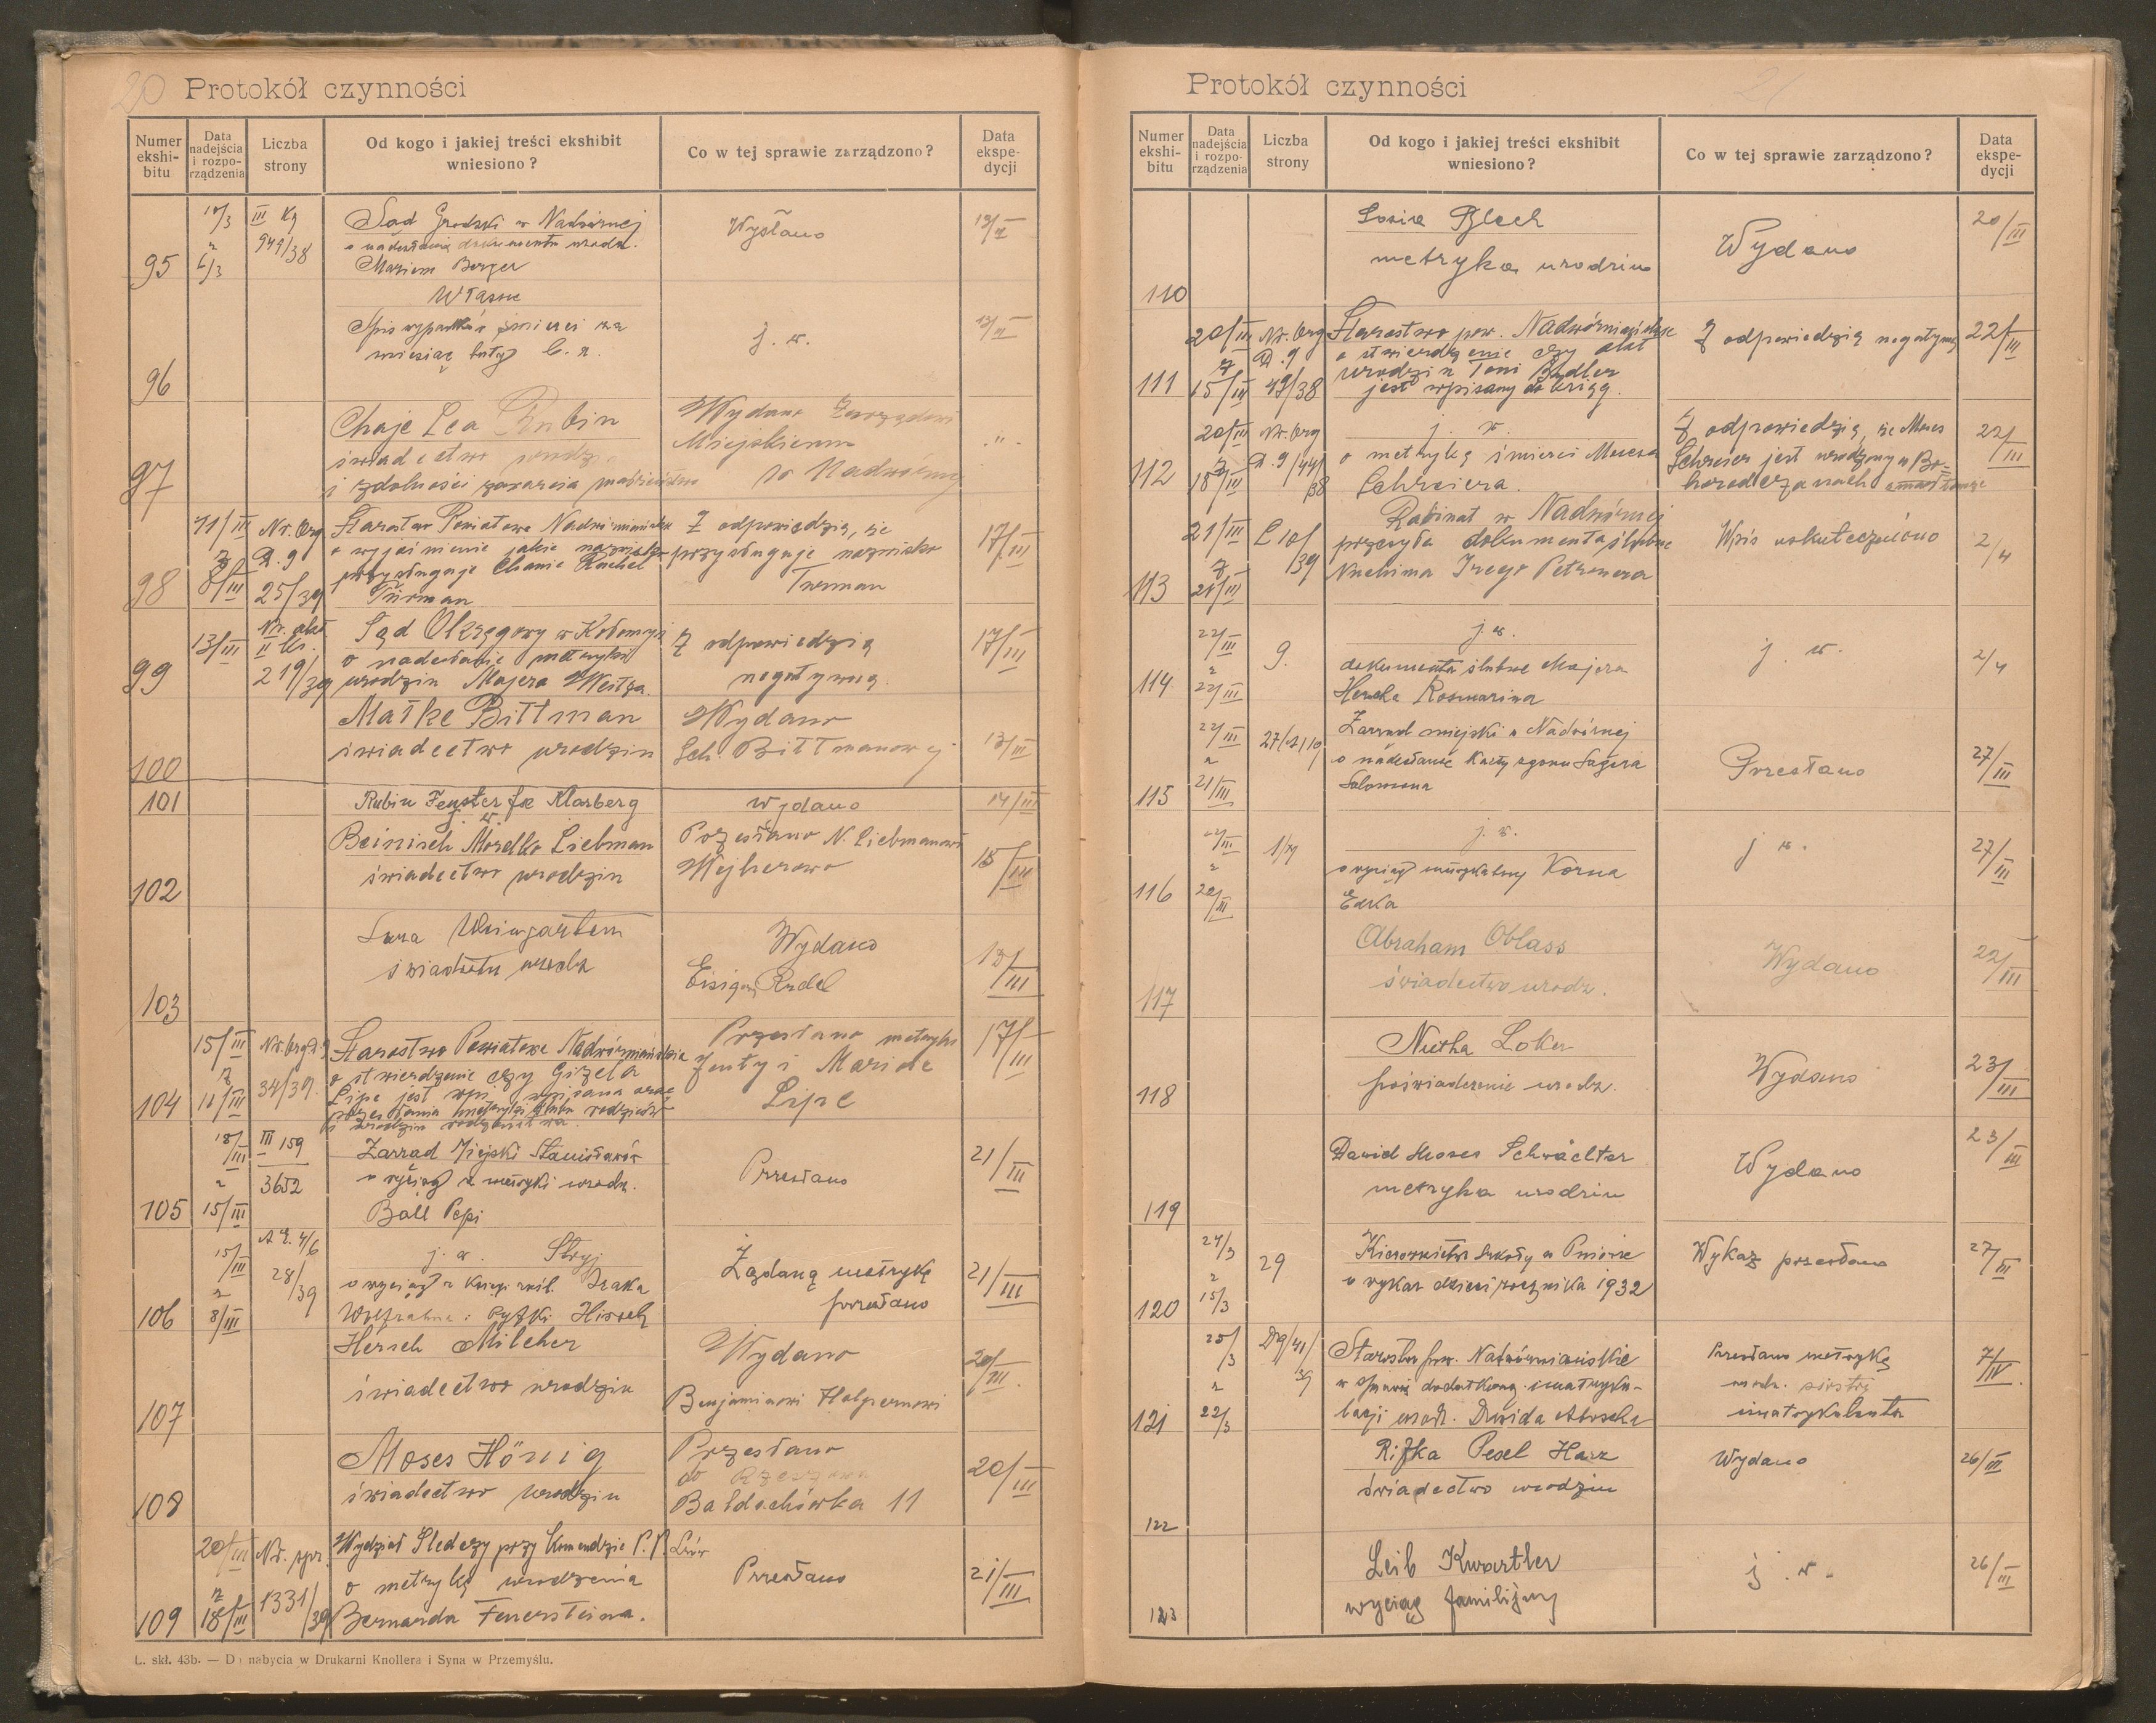 20 Protokół czynności
Numer ekshi-bitu
Data nadejścia i rozpo-rządzenia
Liczba strony
Od kogo i jakiej treści ekshibit wniesiono?
Co w tej sprawie zarządzono?
Data ekspe-dycji
95 III Kg 949/38 Sąd Grodzki w Nadwórnej Wysłano
o nadesłanie dokumentu urodz.
Mariem Berger
Własne
96 Spis wypadków śmierci za j. w.
miesiąc luty b. r.
97 Chaje Lea Rubin Wydano Zarządowi
świadectwo urodz. Miejskiemu
i zdolności zawarcia małżeństwa w Nadwórnej
98 11/III z 8/III Nr. Org D. 9 25/39 Starostwo Powiatowe Nadwórniańskie Z odpowiedzią, że 17/III
o wyjaśnienie jakie nazwisko przysługuje nazwisko
przysługuje Chanie Rachel Turman
Türman
99 13/III Nr. akt II Kr. 219/39 Sąd Okręgowy w Kołomyi Z odpowiedzią 17/III
o nadesłanie metryki negatywną
urodzin Majera Westza.
100 Małke Bittman Wydano 13/III
świadectwo urodzin Sch. Bittmanowej
101 Rubin Fenster fse Klarberg wydano 14/III
j. w.
102 Beinisch Mordko Liebman Przesłano N. Liebmanowi 15/III
świadectwo urodzin Wejherowo
103 Sara Weingarten Wydano
świadectwo urodz Rudel
104 15/III z 11/III 34/39 Starostwo Powiatowe Nadwórniańskie Przesłano metryki 17/III
o stwierdzenie czy Gizela Jenty i Maride
Lipe jest wpisana oraz Lipe
przesłania metryki ślubu rodziców
i urodzin rodzeństwa.
105 18/III z 15/III III 159 3652 Zarząd Miejski Stanisławów Przesłano 21/III
o wyciąg z metryki urodz.
Ball Pepi
106 15/III z 8/III 28/39 j. w. Stryj Żądaną metrykę 21/III
o wyciąg z księgi Izaka przesłano
Hirsch
107 Hersch Milcher Wydano 20/III
świadectwo urodzin Benjaminowi Halpernowi
108 Moses Hönig Przesłano 20/III
świadectwo urodzin do Rzeszowa
Bałdachówka 11
109 20/III z 18/III Nr. spr. 1331/39 Wydział Śledczy przy Komendzie P. P. Lwów Przesłano 21/III
o metrykę urodzenia
Bernarda Feuersteina.
L. skł. 43b. — Do nabycia w Drukarni Knollera i Syna w Przemyślu.
Protokół czynności 21
Numer ekshi-bitu
Data nadejścia i rozpo-rządzenia
Liczba strony
Od kogo i jakiej treści ekshibit wniesiono?
Co w tej sprawie zarządzono?
Data ekspe-dycji
110 Blech Wydano 20/III
metryka urodzin
111 20/III z 15/III Nr. Org D. 9 49/38 Starostwo pow. Nadwórniańskie Z odpowiedzią negatywną 22/III
o stwierdzenie czy akt
urodzin Toni Bydler
jest wpisany do ksiąg.
112 20/III z 18/III Nr. Org D. 9/44/38 j. w. Z odpowiedzią, że Moses 22/III
o metrykę śmierci Mosesa Schreier jest urodzony w Bo-
Schreiera. horodczanach
113 21/III z 21/III L 10/39 Rabinat w Nadwórnej Wpis uskuteczniono 2/4
przesyła dokumenta ślubne
Nuchima Izego Petranera
114 22/III z 22/III 9. j. w. j. w. 2/4
dokumenta ślubne Majera
Hersha Rosmarina
115 22/III z 21/III Zarząd miejski w Nadwórnej Przesłano 27/III
o nadesłanie karty zgonu Sagera
Salomona
116 z 20/III 1/4 j. w. j. w. 27/III
o wyciąg metrykalny Korna
Eska
117 Abraham Oblass Wydano 22/III
świadectwo urodz.
118 Nietha Loker Wydano 23/III
poświadczenie urodz.
119 Dawid Moses Schwächter Wydano 23/III
metryka urodzin
120 24/3 z 15/3 29 Kierownictwo Szkoły w Pniowie Wykaz przesłano 27/III
o wykaz dzieci rocznika 1932
121 25/3 z 22/3 D9/41/39 Starostwo pow. Nadwórniańskie Przesłano metrykę 7/IV
w sprawie dodatkowej imatryku- urodz. siostry
lacji urodz. Dawida imatrykulanta
122 Rifka Pesel Harz Wydano 26/III
świadectwo urodzin
123 Leib Kwartler j. w. 26/III
wyciąg familijny